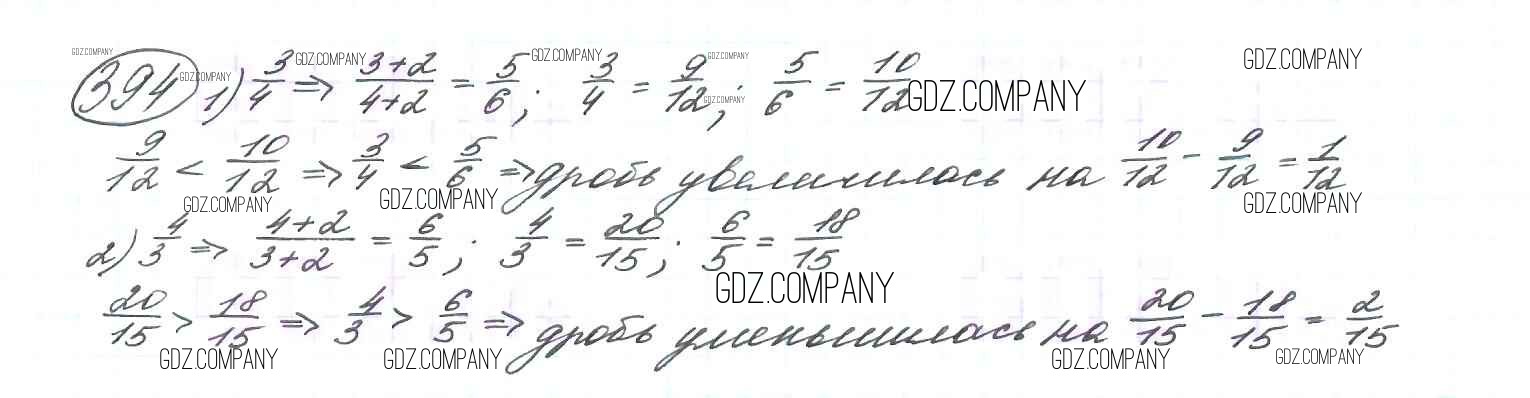 GDZ.COMPANY GDZ.COMPANY GDZ.COMPANY GDZ.COMPANY GDZ.COMPANY
394 1) 3/4 ⇒ (3+2)/(4+2) = 5/6; 3/4 = 9/12; 5/6 = 10/12
GDZ.COMPANY GDZ.COMPANY GDZ.COMPANY
9/12 < 10/12 ⇒ 3/4 < 5/6 ⇒ дробь увеличилась на 10/12 - 9/12 = 1/12
GDZ.COMPANY GDZ.COMPANY GDZ.COMPANY
2) 4/3 ⇒ (4+2)/(3+2) = 6/5; 4/3 = 20/15; 6/5 = 18/15
GDZ.COMPANY
20/15 > 18/15 ⇒ 4/3 > 6/5 ⇒ дробь уменьшилась на 20/15 - 18/15 = 2/15
GDZ.COMPANY GDZ.COMPANY GDZ.COMPANY GDZ.COMPANY